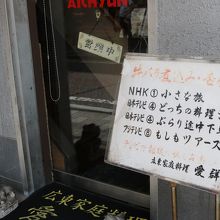 AICHYUN
準備中
NHK① 小さな旅
日本テレビ④ どっちの料理
日本テレビ④ ぶらり途中下
フジテレビ⑧ もしもツアーズ
広東家庭料理 愛群
広東家庭料理